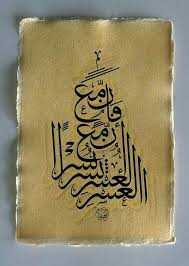 فإن مع
العسر يسرا
إن مع
العسر يسرا